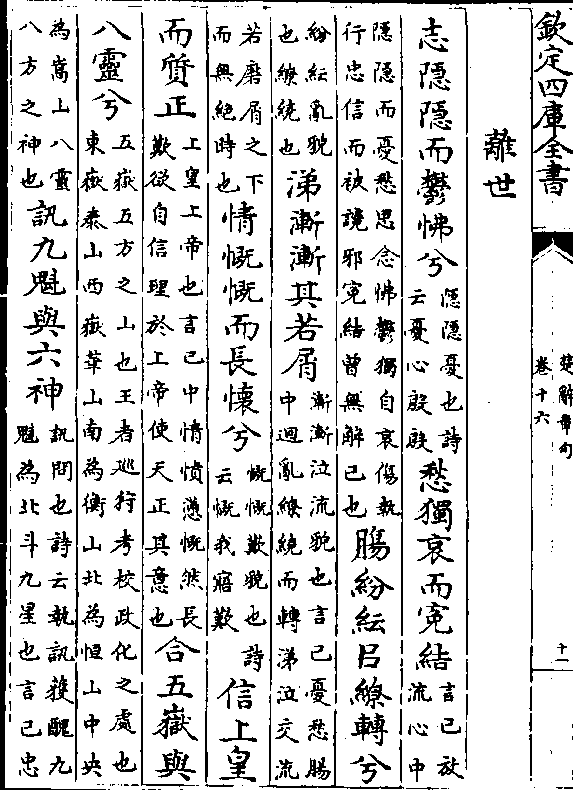 欽定四庫全書
楚辭章句
卷十六
十一
離世
志隠隠而鬱怫兮隠隠憂也詩云憂心殷殷愁獨哀而寃結言己放流心中
隠隠而憂愁思念怫鬱獨自哀傷執行忠信而被讒邪寃結曽無解已也膓紛紜㠯繚轉兮
紛紜亂貌也繚繞也涕漸漸其若屑漸漸泣流貌也言己憂愁膓中迴亂繚繞而轉涕泣交流
若磨屑之下而無絶時也情慨慨而長懷兮慨慨歎貌也詩云慨我寤歎信上皇
而質正上皇上帝也言己中情憤懣慨然長歎欲自信理於上帝使天正其意也合五嶽與
八靈兮五嶽五方之山也王者巡狩考校政化之處也東嶽泰山西嶽華山南為衡山北為恒山中央
為嵩山八靈八方之神也訊九鬿與六神訊問也詩云執訊獲醜九鬿為北斗九星也言己忠